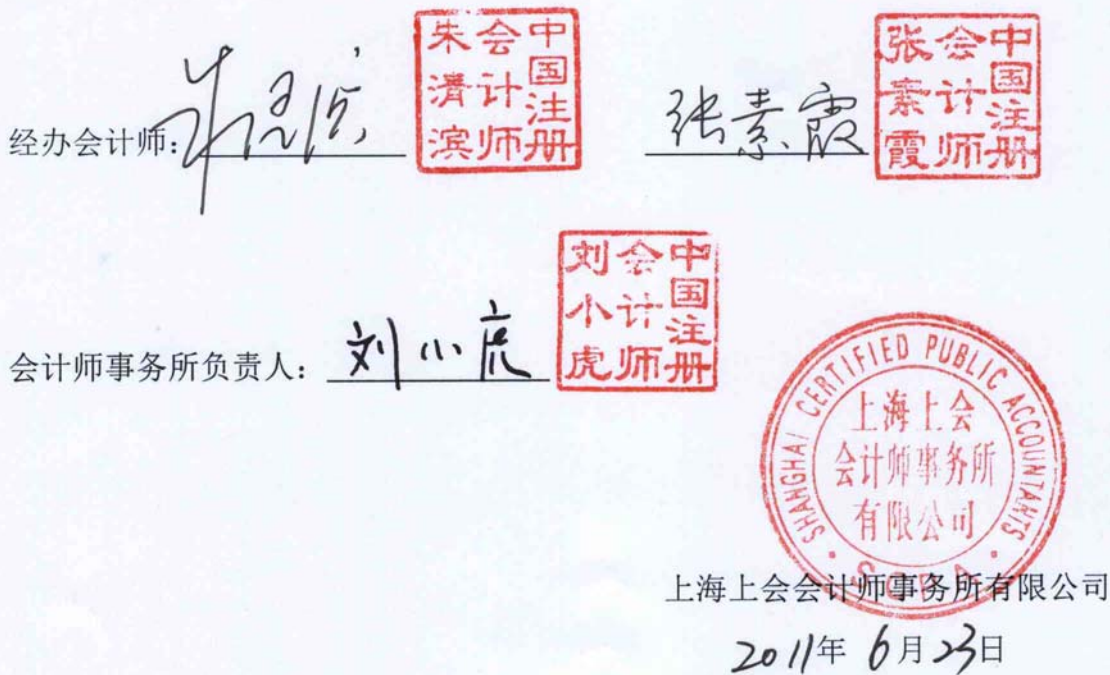 经办会计师:
中国注册
会计师
朱清滨
张素霞
中国注册
会计师
张素霞
会计师事务所负责人: 刘小虎
中国注册
会计师
刘小虎
SHANGHAI CERTIFIED PUBLIC ACCOUNTANTS
上海上会
会计师事务所
有限公司
SCPA
上海上会会计师事务所有限公司
2011年 6月23日